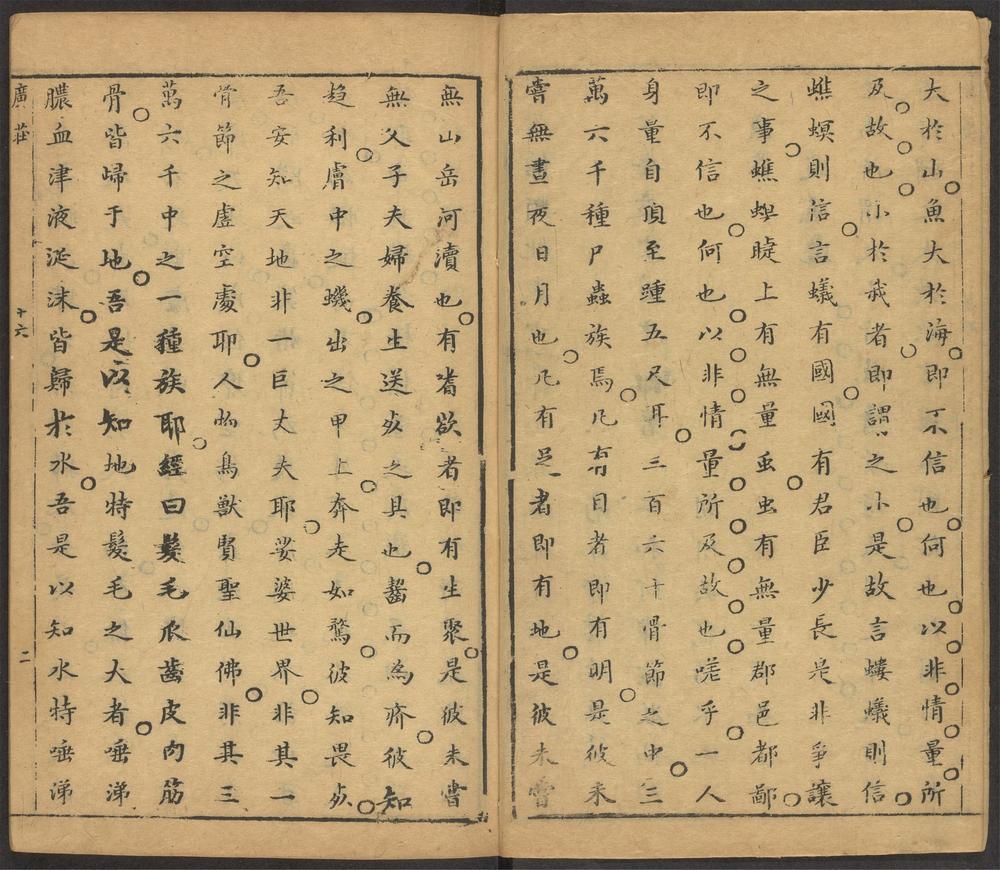 大於山魚大於海即不信也何也以非情量所
及故也小於我者即謂之小是故言螻蟻則信
蟭螟則信言蟻有國國有君臣少長是非爭讓
之事蟭螟睫上有無量虫虫有無量郡邑都鄙
即不信也何也以非情量所及故也嗟乎一人
身量自頂至踵五尺耳三百六十骨節之中三
萬六千種尸蟲族焉凡有目者即有明是彼未
嘗無晝夜日月也凡有足者即有地是彼未嘗
無山岳河瀆也有嗜欲者即有生聚是彼未嘗
無父子夫婦養生送死之具也齧而為疥彼知
趋利膚中之蟣出之甲上奔走如驚彼知畏死
吾安知天地非一巨丈夫耶娑婆世界非其一
骨節之虛空處耶人物鳥獸賢聖仙佛非其三
萬六千中之一種族耶經曰髮毛爪齒皮肉筋
骨皆歸于地吾是以知地特髮毛之大者唾涕
膿血津液涎沫皆歸於水吾是以知水特唾涕
廣莊
十六
二